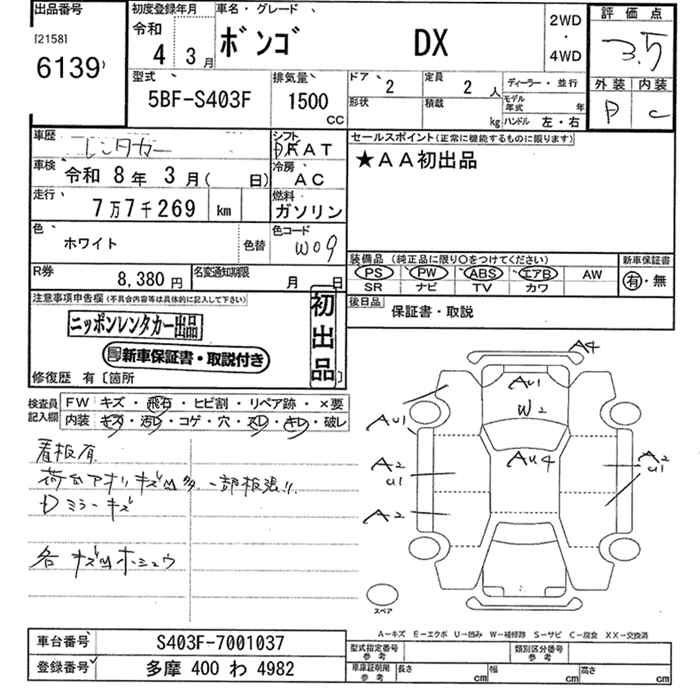 出品番号
[2158]
6139
初度登録年月
令和
4 3月
車名・グレード
ボンゴ DX
2WD
・
4WD
評価点
3.5
外装 内装
P C
型式
5BF-S403F
排気量
1500
CC
ドア 2
形状
定員 2 人
積載 kg
ディーラー・並行
モデル年式 年
ハンドル 左・右
車歴
レンタカー
シフト
AT
車検
令和 8年 3月( 日)
冷房
AC
走行
7万7千269 km
燃料
ガソリン
色
ホワイト
色替
色コード
W09
R券
8,380円
名変通知期限
月 日
セールスポイント(正常に機能するものに限ります)
★AA初出品
装備品(純正品に限り○をつけてください)
PS PW ABS エアB AW
SR ナビ TV カワ
新車保証書
有・無
後日品
保証書・取説
注意事項申告欄(不具合内容等は具体的に記入して下さい)
ニッポンレンタカー出品
新車保証書・取説付き
初出品
修復歴 有〔箇所 〕
検査員記入欄
FW キズ・飛石・ヒビ割・リペア跡・×要
内装 キズ・汚レ・コゲ・穴・スレ・キレ・破レ
看板有
荷台アオリキズ凹多 一部板張!!
Dミラーキズ
各キズ凹ホシュウ
A4
AU1
W2
AU1
AU4
A2
U1
A2
U1
A2
スペア
A-キズ E-エクボ U-凹み W-補修跡 S-サビ C-腐食 XX-交換済
車台番号
S403F-7001037
登録番号
多摩 400 わ 4982
型式指定番号
参考
類別区分番号
参考
車庫証明用
参考
長さ cm
幅 cm
高さ cm